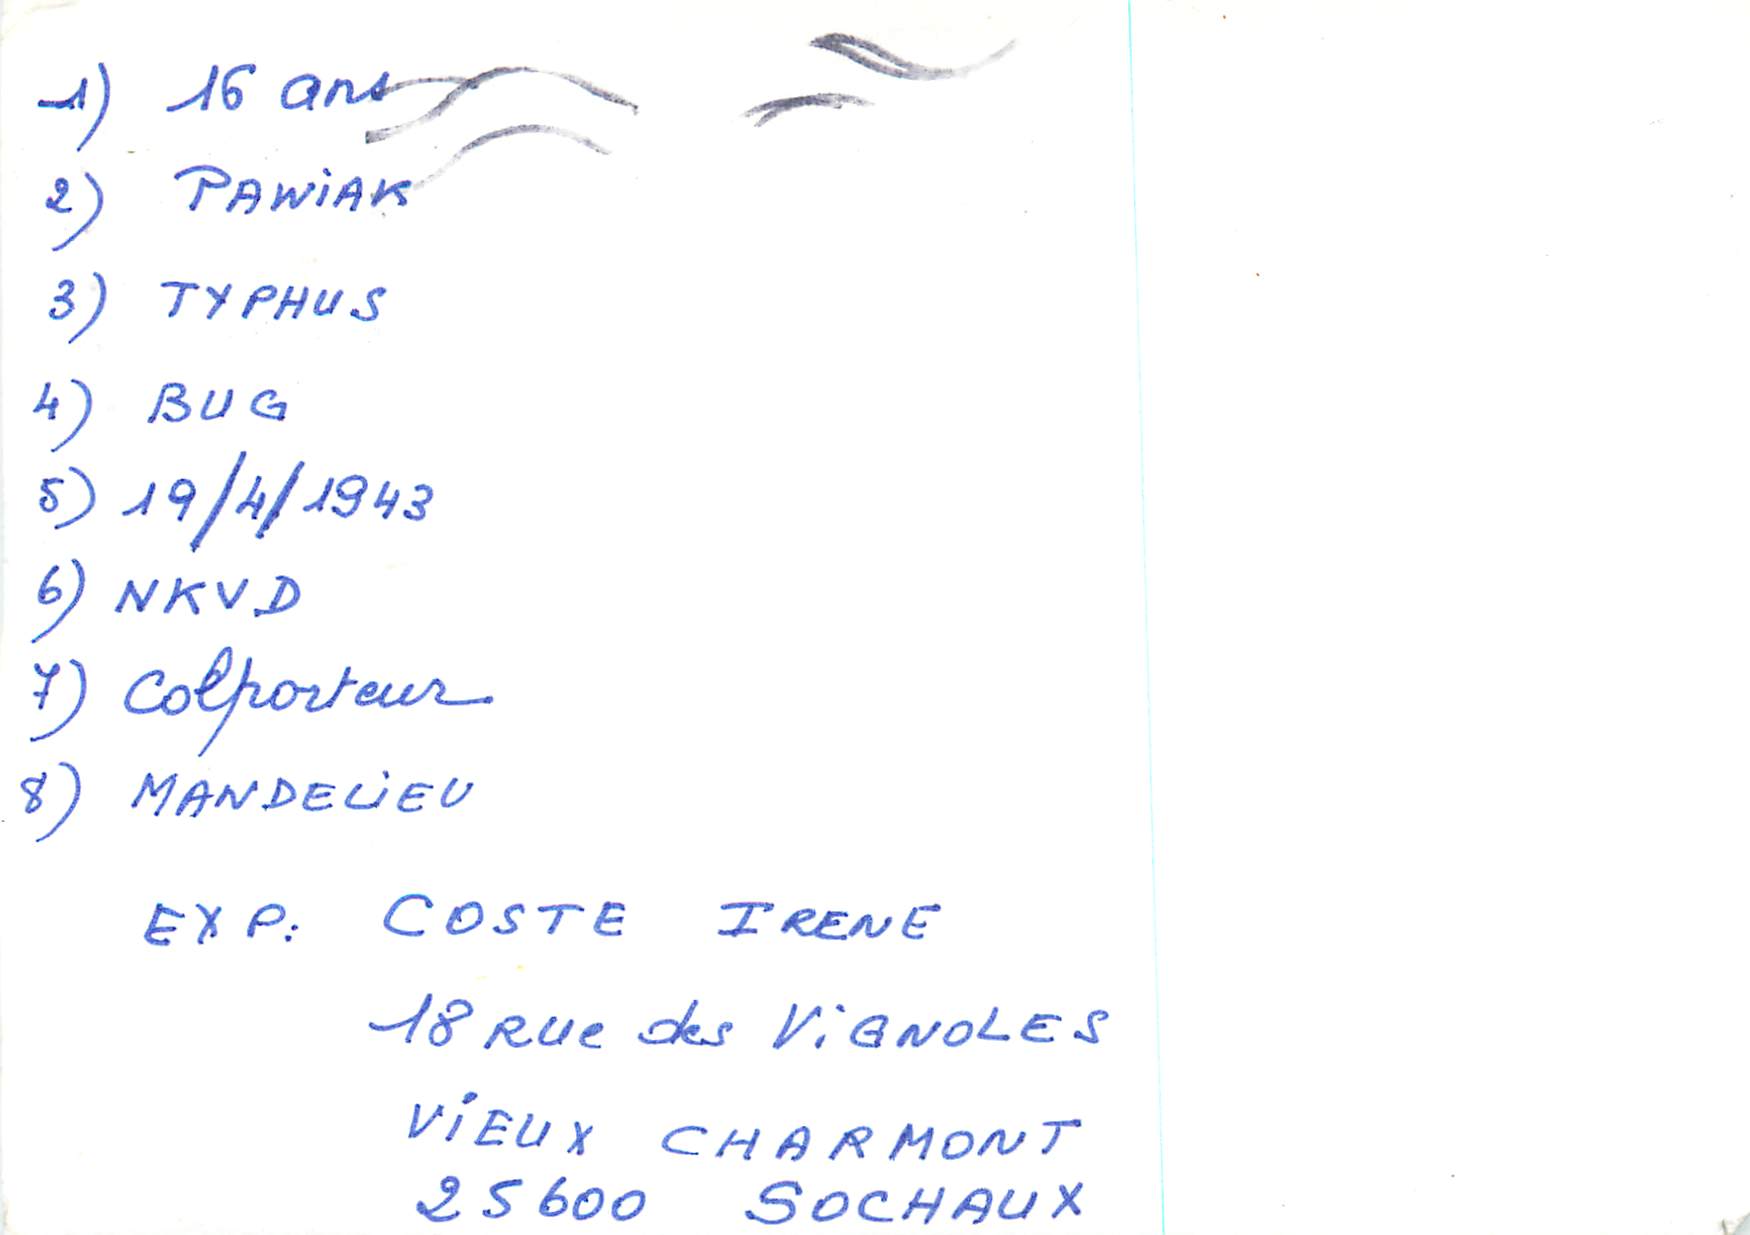 1) 16 ans
2) PAWiAK
3) TYPHUS
4) BUG
5) 19/4/1943
6) NKVD
7) Colporteur
8) MANDELiEU
EXP: COSTE IRENE
18 RUe des ViGNOLES
ViEUX CHARMONT
25600 SOCHAUX